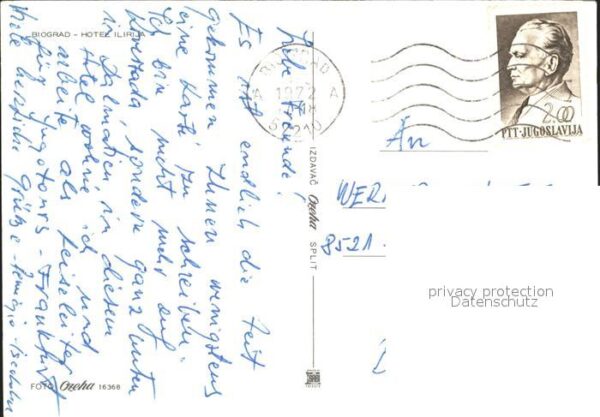 BIOGRAD - HOTEL ILIRIJA
Liebe Freunde!
Es ist endlich die Zeit
gekommen Ihnen wenigstens
eine Karte zu schreiben.
Ich bin nicht mehr auf
sondern ganz unten
in Dalmatien, in diesem
Hotel wohne ich und
arbeite als Reiseleiter
für Jugotours - Frankfurt
Viele herzliche Grüße
FOTO Ozeha 16368
IZDAVAČ Ozeha SPLIT
BIOGRAD
A 1972 A
2.00
PTT-JUGOSLAVIJA
An
8521
privacy protection
Datenschutz